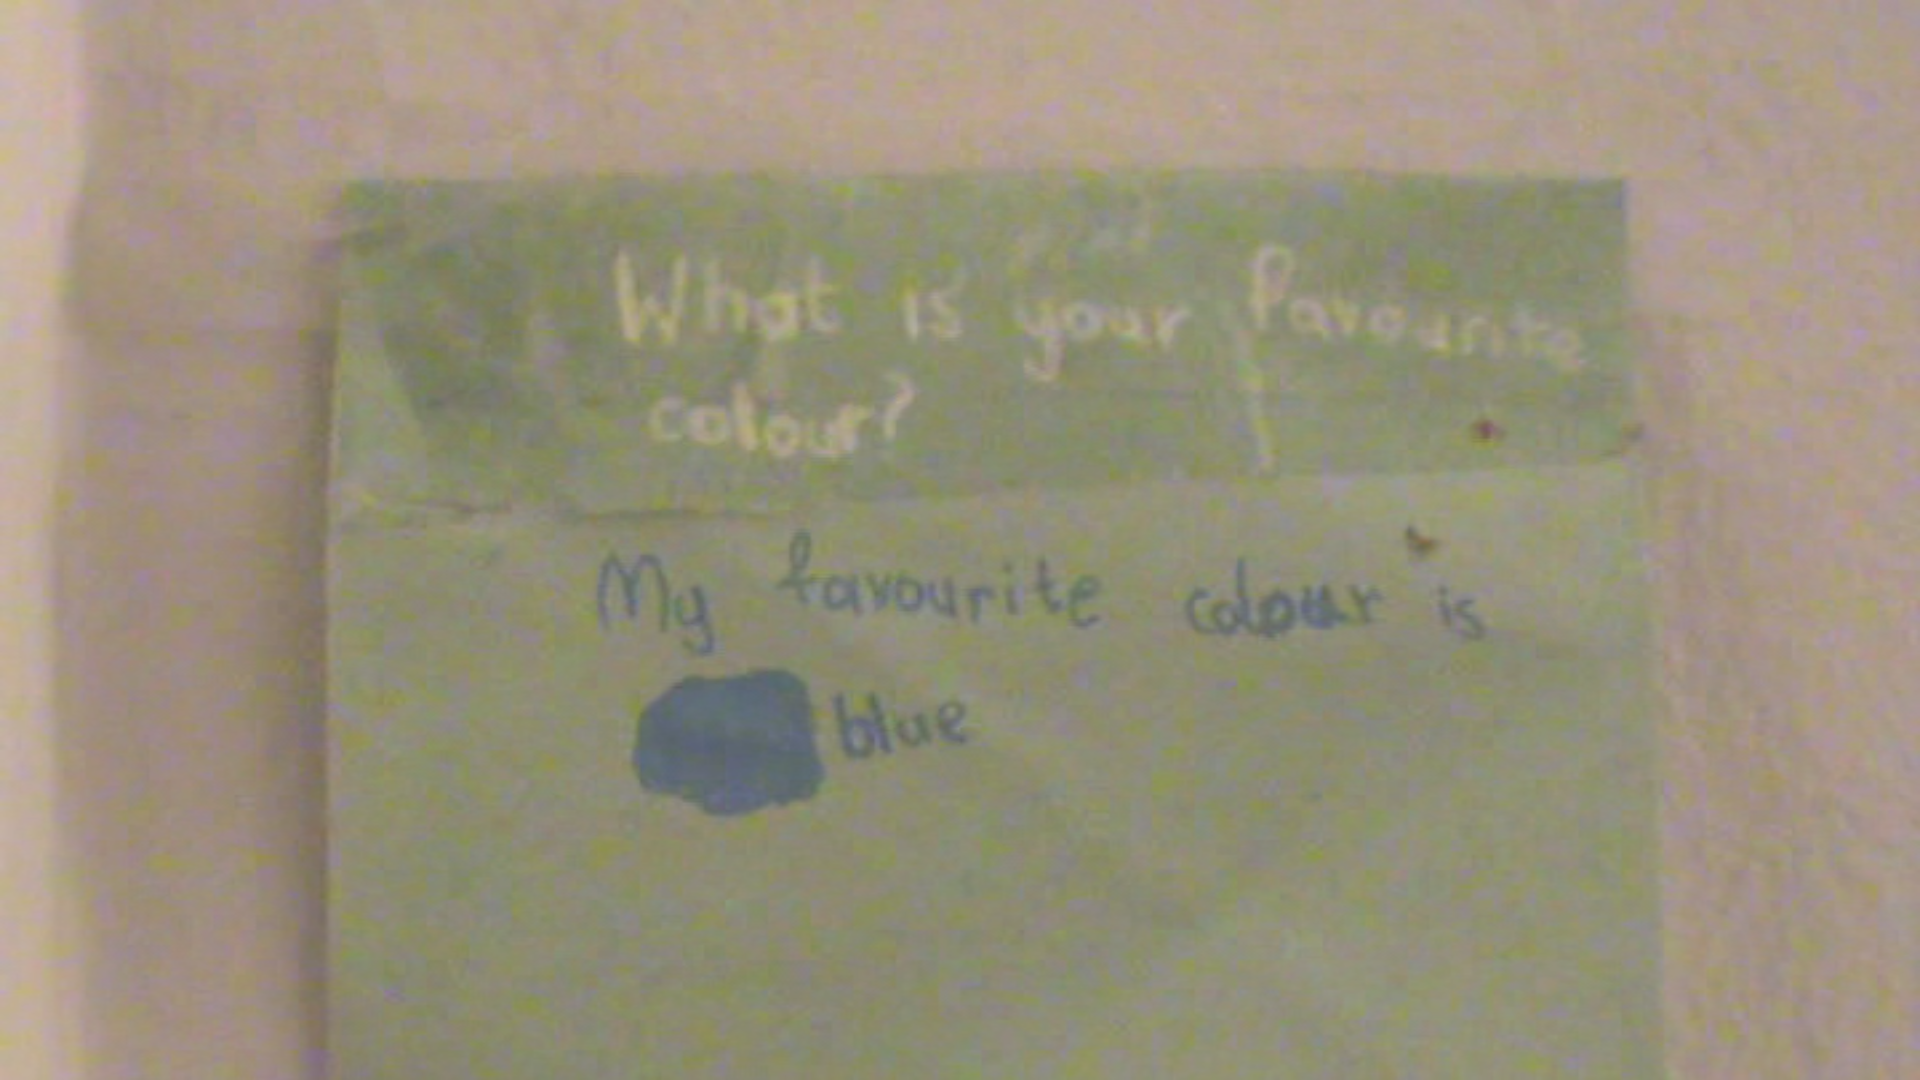 What is your favourite
colour?
My favourite colour is
blue